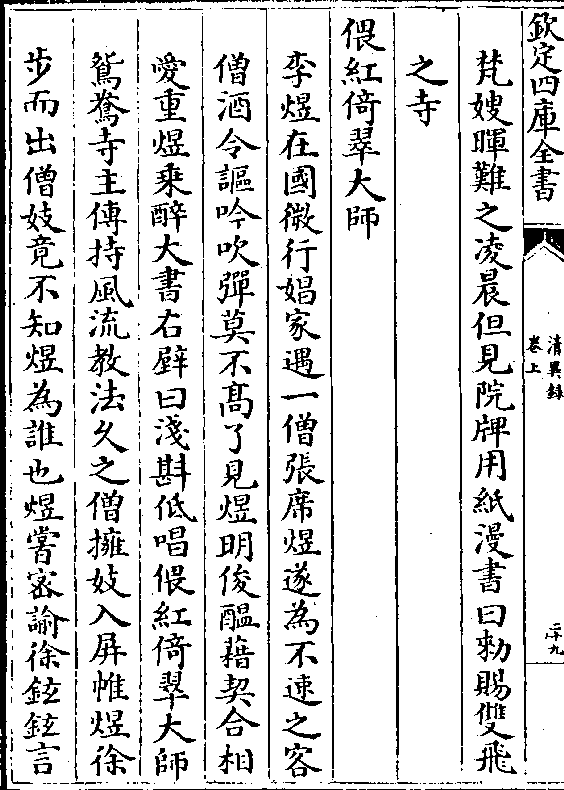 欽定四庫全書
清異錄
卷上
二十九
梵嫂暉難之凌晨但見院牌用紙漫書曰勅賜雙飛
之寺
偎紅倚翠大師
李煜在國微行娼家遇一僧張席煜遂為不速之客
僧酒令謳吟吹彈莫不高了見煜明俊醖藉契合相
愛重煜乘醉大書右壁曰淺斟低唱偎紅倚翠大師
鴛鴦寺主傳持風流教法久之僧擁妓入屏帷煜徐
步而出僧妓竟不知煜為誰也煜嘗密諭徐鉉鉉言